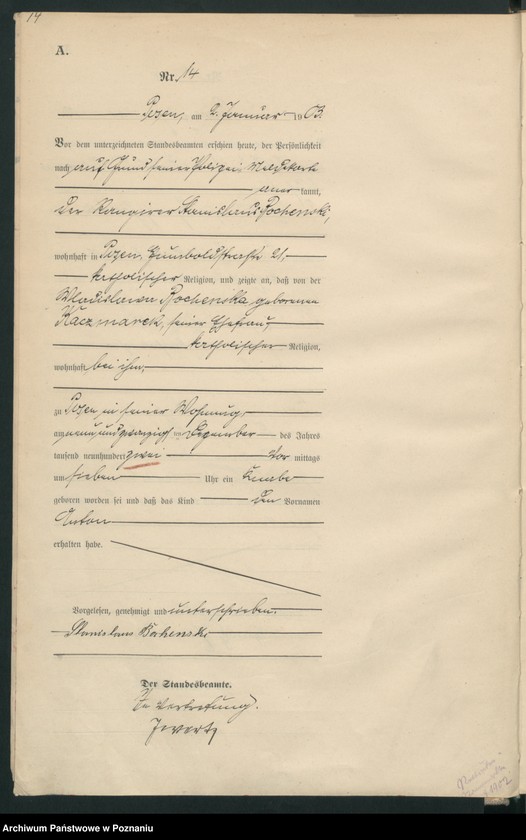 14
A.
Nr. 14
Posen, am 2. Januar 1903.
Vor dem unterzeichneten Standesbeamten erschien heute, der Persönlichkeit
nach auf Grund seiner Polizei-Meldekarte
kannt,
der Rangirer Stanislaus Bochenski,
wohnhaft in Posen, Humboldtstraße 21,
katholischer Religion, und zeigte an, daß von der
Wladislawa Bochenska geborenen
Kaczmarek, seiner Ehefrau,
katholischer Religion,
wohnhaft bei ihm,
zu Posen in seiner Wohnung
am neunundzwanzigsten Dezember des Jahres
tausend neunhundert zwei Vor mittags
um sieben Uhr ein Knabe
geboren worden sei und daß das Kind den Vornamen
Anton
erhalten habe.
Vorgelesen, genehmigt und unterschrieben.
Stanislaus Bochenski
Der Standesbeamte.
In Vertretung.
Archiwum Państwowe w Poznaniu